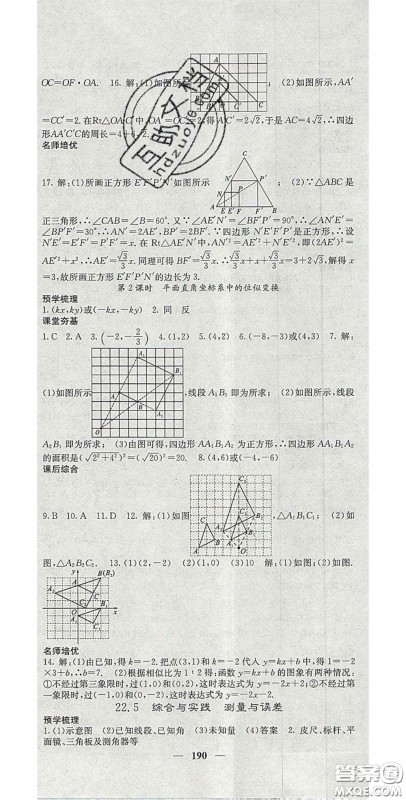 OC=OF·OA. 16. 解:(1)如图所示 ;(2)如图所示,AA′
=CC′=2. 在Rt△OA′C′中,OA′=OC′=2,得A′C′=2√2,于是AC=4√2,∴四边
形AA′C′C的周长=4+6√2.
名师培优
17. 解:(1)所画正方形E′F′P′N′如图所示 ;(2)∵△ABC是
正三角形,∴∠CAB=∠B=60°. 又∵∠AE′N′=∠BF′P′=90°,∴∠AN′E′=
∠BP′F′=30°,∴AN′=2AE′,BP′=2BF′. ∵四边形N′E′F′P′是正方形,∴设
N′E′=E′F′=P′F′=x. 在Rt△AN′E′中,AN′²=AE′²+N′E′²,即(2AE′)²=
AE′²+x²,∴AE′=√3/3 x. 同理可得BF′=√3/3 x. ∴√3/3 x+x+√3/3 x=3+2√3,解得x
=3,故所画正方形E′F′P′N′的边长为3.
第2课时 平面直角坐标系中的位似变换
预学梳理
1. (kx,ky)或(-kx,-ky) 2. 同 反
课堂夯基
1. C 2. A 3. (-2,-2/3) 4. (1,2) 5. (4,2) 6. (-8,-3)或(4,3) 7. 解:
(1)如图所示 ,线段A₁B₁即为所求;(2)如图所示,线段
A₂B₁即为所求;(3)由图可得,四边形AA₁B₁A₂为正方形,∴四边形AA₁B₁A₂
的面积是(√(2²+4²))²=(√20)²=20. 8. (4,6)或(-4,-6)
课后综合
9. B 10. A 11. D 12. 解:(1)如图 ,△A₁B₁C₁;(2)如
图,△A₂B₂C₂. 13. (1)(2,-2) (2)(1,0) (3)10 解:(1)如图;(2)如图.
名师培优
14. 解:(1)由已知,得k=-2. 把点(3,1)和k=-2代入y=kx+b中,得1=-2
×3+b,∴b=7;(2)根据相似比为1∶2,得函数y=kx+b的图象有两种情况:
①不经过第三象限时,过(1,0)和(0,2),这时表达式为y=-2x+2;②不经过第
一象限时,过(-1,0)和(0,-2),这时表达式为y=-2x-2.
22.5 综合与实践 测量与误差
预学梳理
1. (1)示意图 (2)已知线段、已知角 (3)未知量 (4)答案 2. 皮尺、标杆、平
面镜、三角板及测角器等
190